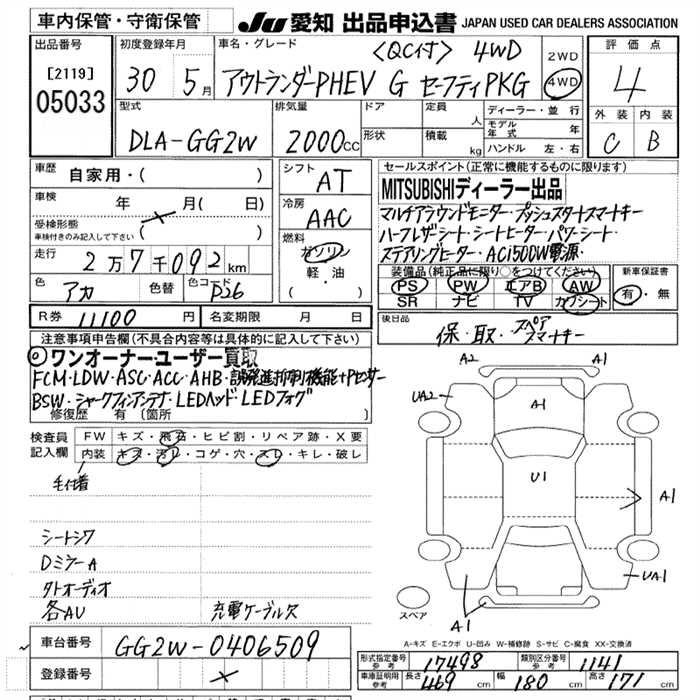 車内保管・守衛保管
JU 愛知 出品申込書 JAPAN USED CAR DEALERS ASSOCIATION
出品番号
[2119]
05033
初度登録年月
30 5月
車名・グレード
〈QC付〉 4WD
アウトランダーPHEV G セーフティPKG
2WD
4WD
評価点
4
外装 内装
C B
型式
DLA-GG2W
排気量
2000cc
ドア
形状
定員 人
積載 kg
ディーラー・並行
モデル年式 年
ハンドル 左・右
車歴
自家用・( )
車検
年 月( 日)
受検形態
車検付きのみ記入して下さい
走行
2万7千092km
色
アカ
色替
色コード
P26
シフト
AT
冷房
AAC
燃料
ガソリン
軽・油
( )
セールスポイント(正常に機能するものに限ります)
MITSUBISHIディーラー出品
マルチアラウンドモニター・プッシュスタートスマートキー
ハーフレザーシート・シートヒーター・パワーシート・
ステアリングヒーター・AC1500W電源・
装備品(純正品に限り○をつけてください)
PS PW エアB AW
SR ナビ TV カワシート
新車保証書
有・無
R券 11100円
名変期限 月 日
後日品
保・取・スペアスマートキー
注意事項申告欄(不具合内容等は具体的に記入して下さい)
◎ワンオーナーユーザー買取
FCM・LDW・ASC・ACC・AHB・誤発進抑制機能+Pセンサー
BSW・シャークフィンアンテナ・LEDヘッド・LEDフォグ
修復歴 有 〔箇所 〕
検査員記入欄
FW キズ・飛石・ヒビ割・リペア跡・X要
内装 キズ・汚レ・コゲ・穴・スレ・キレ・破レ
毛付着
シートシワ
DミラーA
外オーディオ
各AU
充電ケーブルス
A2 A1
UA2 A1
U1
A1
UA1
A1
スペア
A-キズ E-エクボ U-凹み W-補修跡 S-サビ C-腐食 XX-交換済
車台番号 GG2W-0406509
登録番号
形式指定番号 参考 17498
類別区分番号 参考 1141
車庫証明用 参考 長さ 469 cm 幅 180 cm 高さ 171 cm